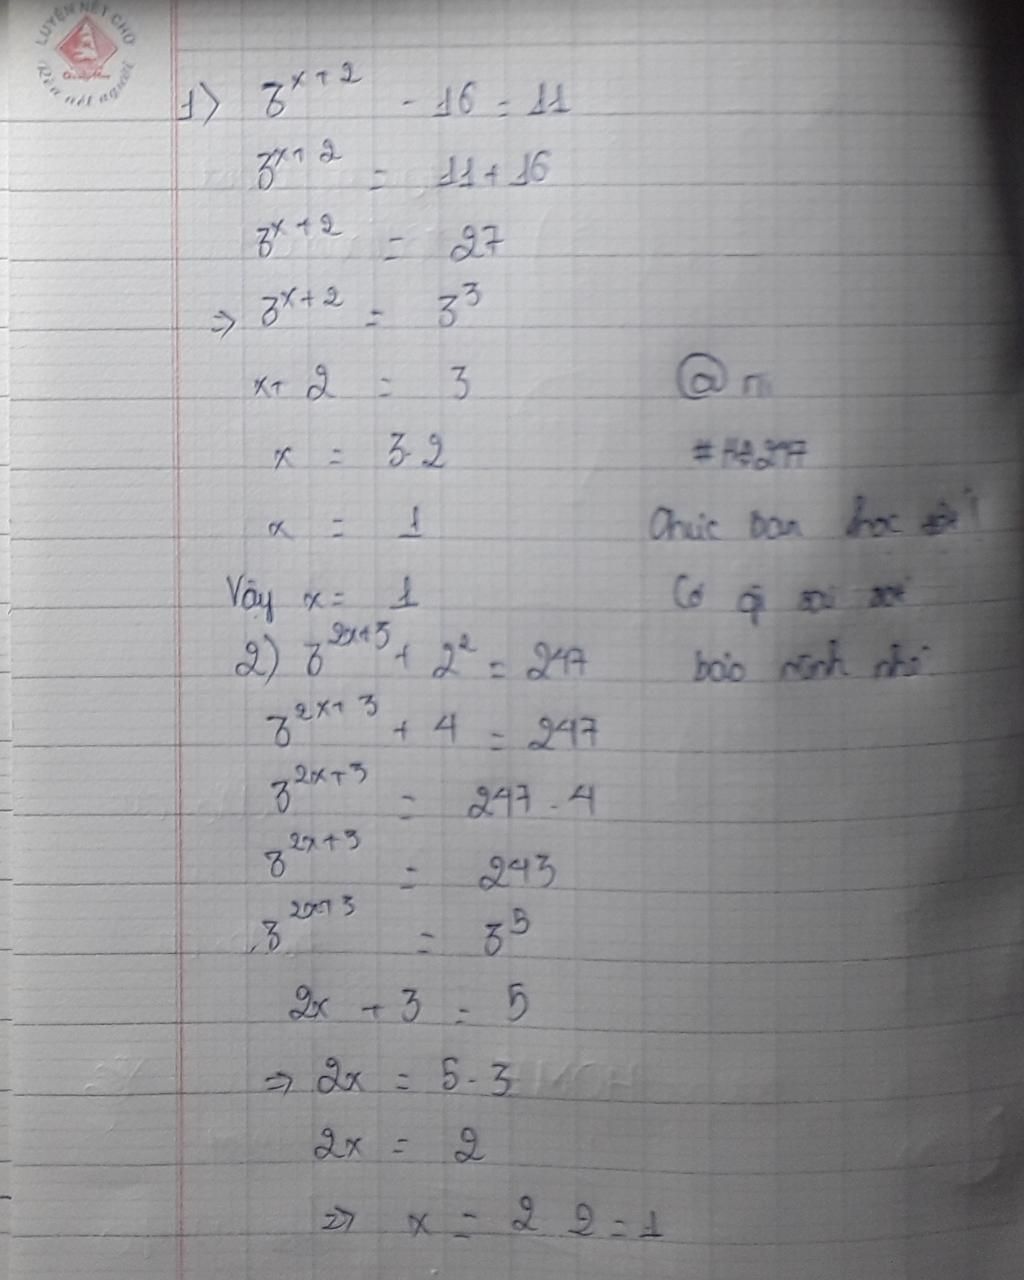 LUYỆN NÉT CHỮ
Rèn nết người
1) 3^{x+2} - 16 = 11
3^{x+2} = 11 + 16
3^{x+2} = 27
=> 3^{x+2} = 3^3
x + 2 = 3
@
x = 3 - 2
x = 1
Chúc bạn học tốt!
Vậy x = 1
Có gì sai sót
2) 3^{2x+3} + 2^2 = 247
bảo mình nhé
3^{2x+3} + 4 = 247
3^{2x+3} = 247 - 4
3^{2x+3} = 243
3^{2x+3} = 3^5
2x + 3 = 5
=> 2x = 5 - 3
2x = 2
=> x = 2 2 = 1